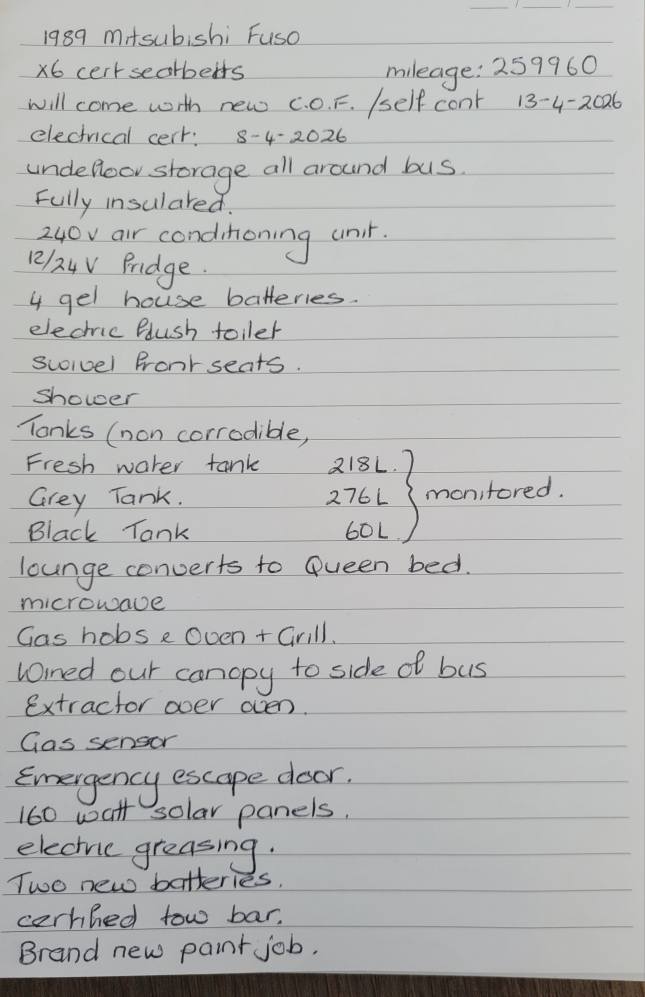 1989 Mitsubishi Fuso
x6 cert seatbelts mileage: 259960
will come with new C.O.F. /self cont 13-4-2026
electrical cert: 8-4-2026
undefloor storage all around bus.
Fully insulated.
240v air conditioning unit.
12/24V fridge.
4 gel house batteries.
electric flush toilet
swivel front seats.
Shower
Tanks (non corrodible,
Fresh water tank 218L.
Grey Tank. 276L } monitored.
Black Tank 60L.
lounge converts to Queen bed.
microwave
Gas hobs & Oven + Grill.
Wined out canopy to side of bus
Extractor over oven.
Gas sensor
Emergency escape door.
160 watt solar panels.
electric greasing.
Two new batteries.
certified tow bar.
Brand new paint job.